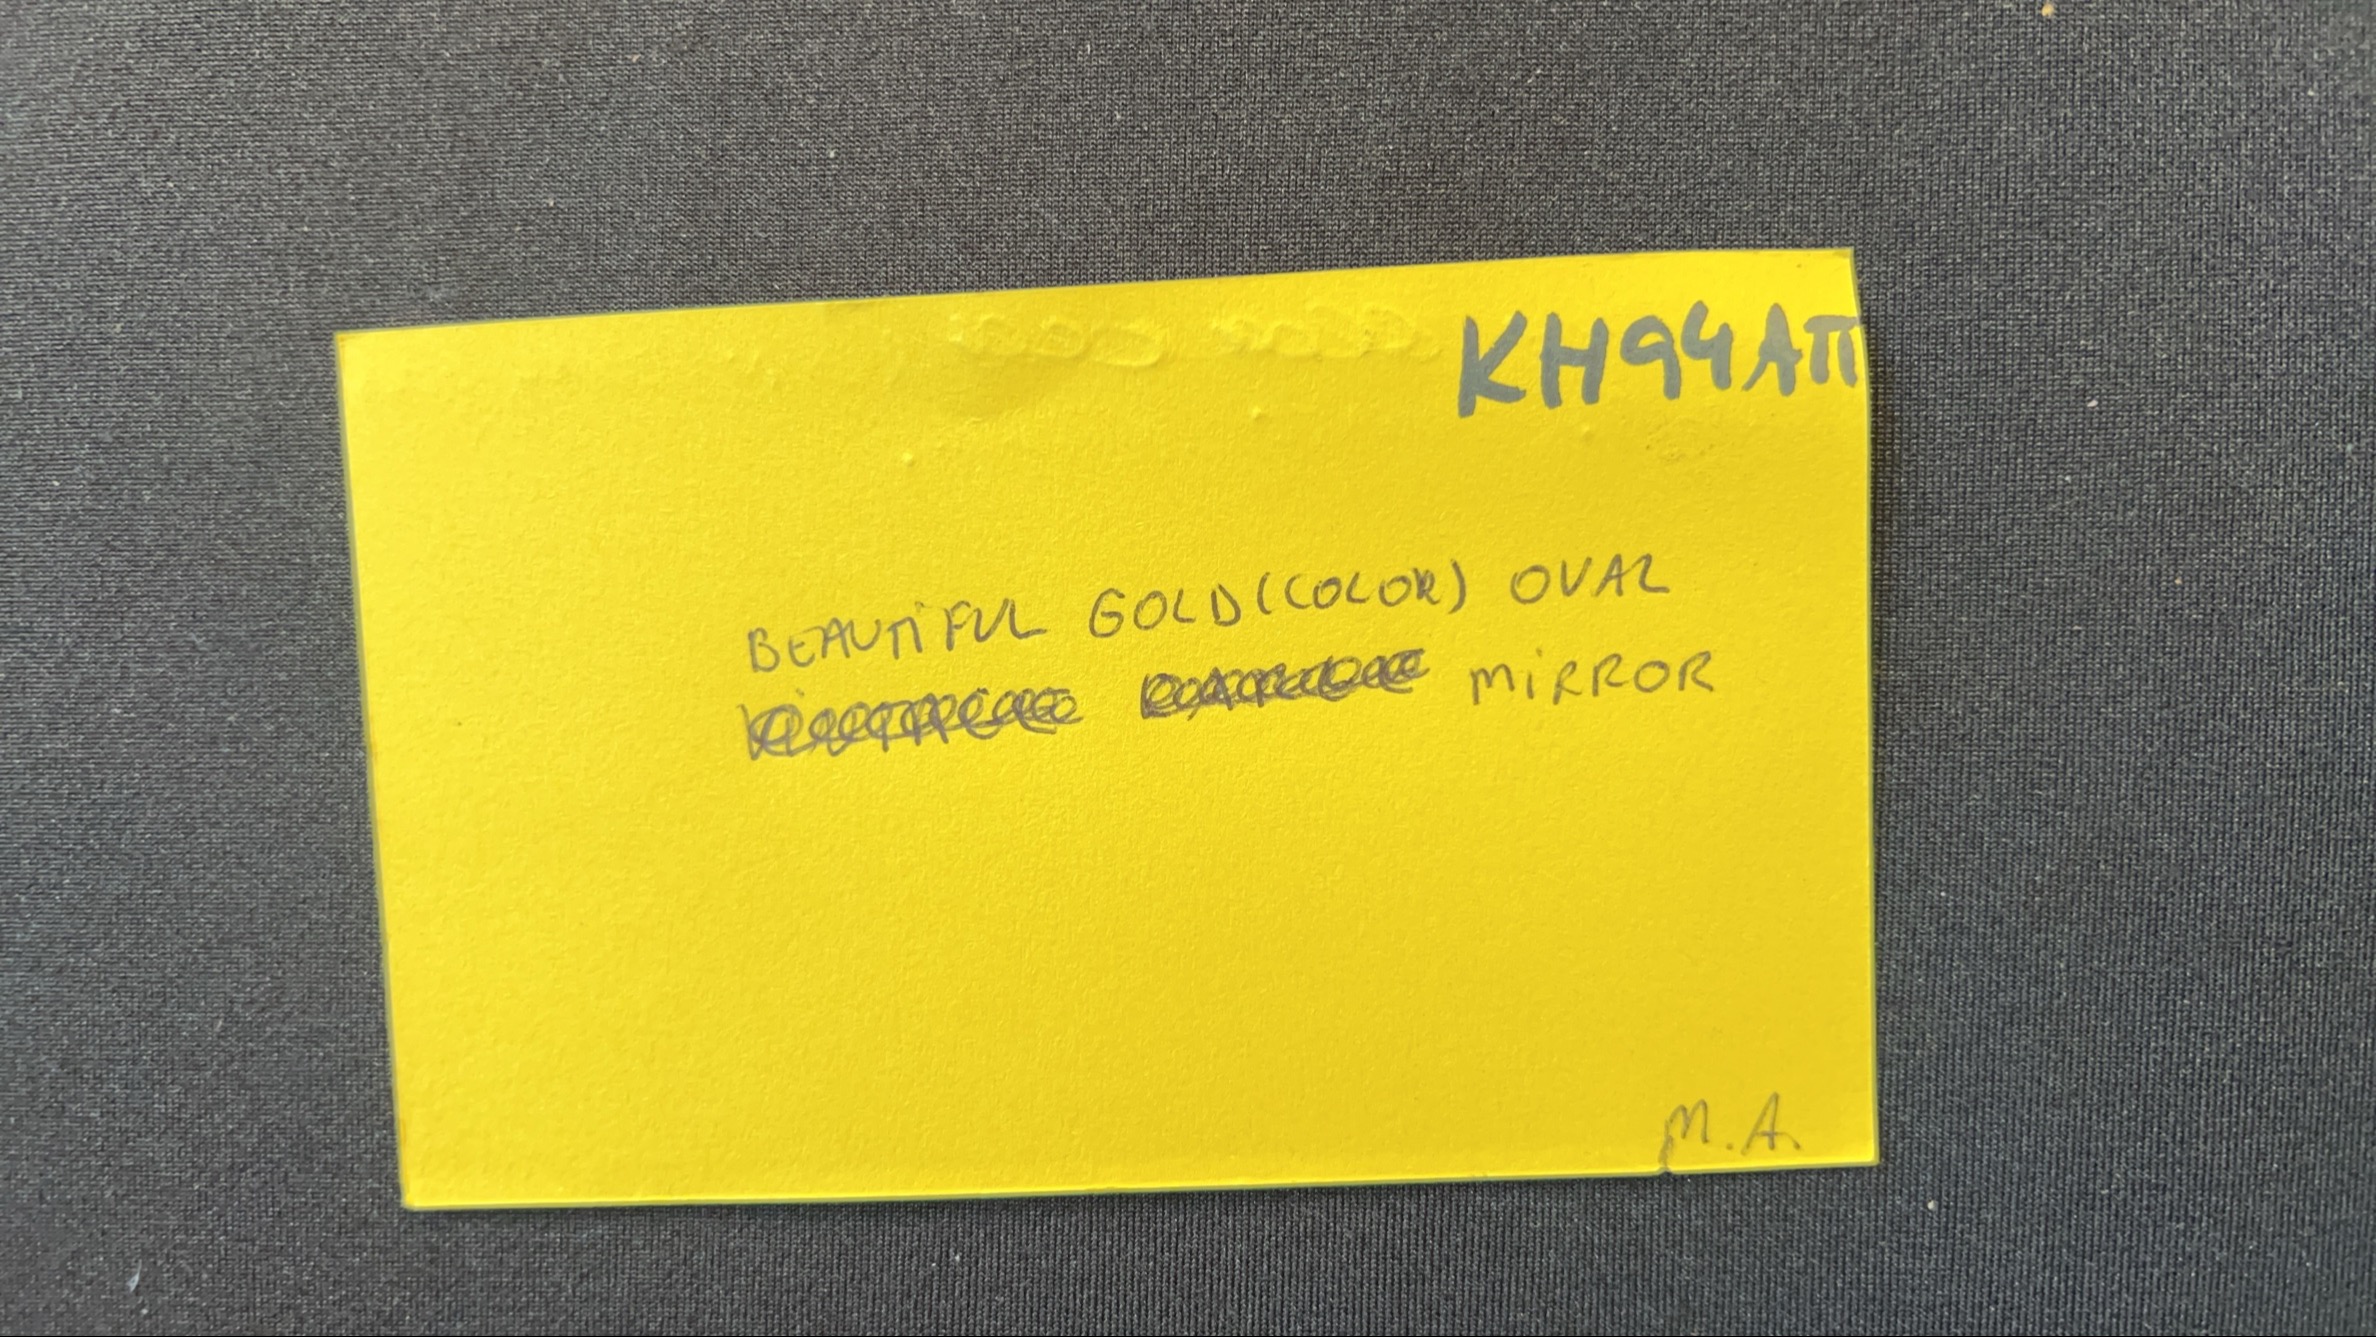 KH94AΠ
BEAUTiFUL GOLD(COLOR) OVAL
MiRROR
M.A.